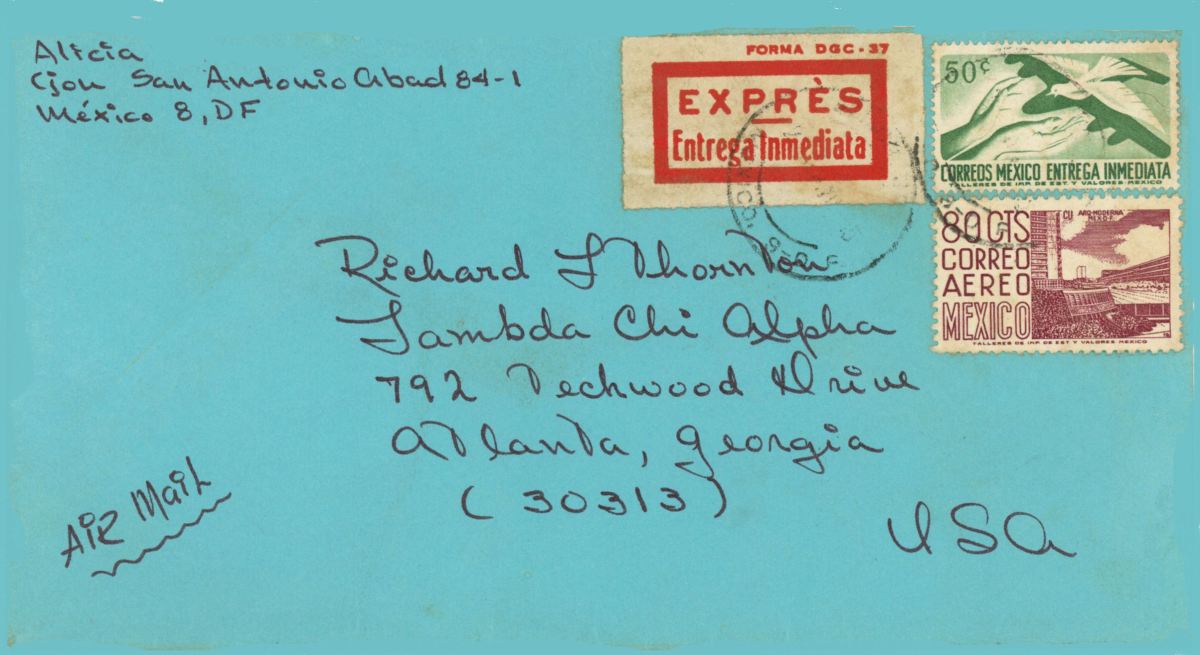 Alicia
Cjon San Antonio Abad 84-1
México 8, DF
FORMA DGC-37
EXPRÈS
Entrega Inmediata
50¢
CORREOS MEXICO ENTREGA INMEDIATA
TALLERES DE IMP. DE EST. Y VALORES MEXICO
80 CTS
CU ARQ-MODERNA
MEX D.F.
CORREO
AEREO
MEXICO
TALLERES DE IMP. DE EST. Y VALORES MEXICO
Richard L Thornton
Lambda Chi Alpha
792 Techwood Drive
Atlanta, Georgia
(30313)
USA
AiR MaiL